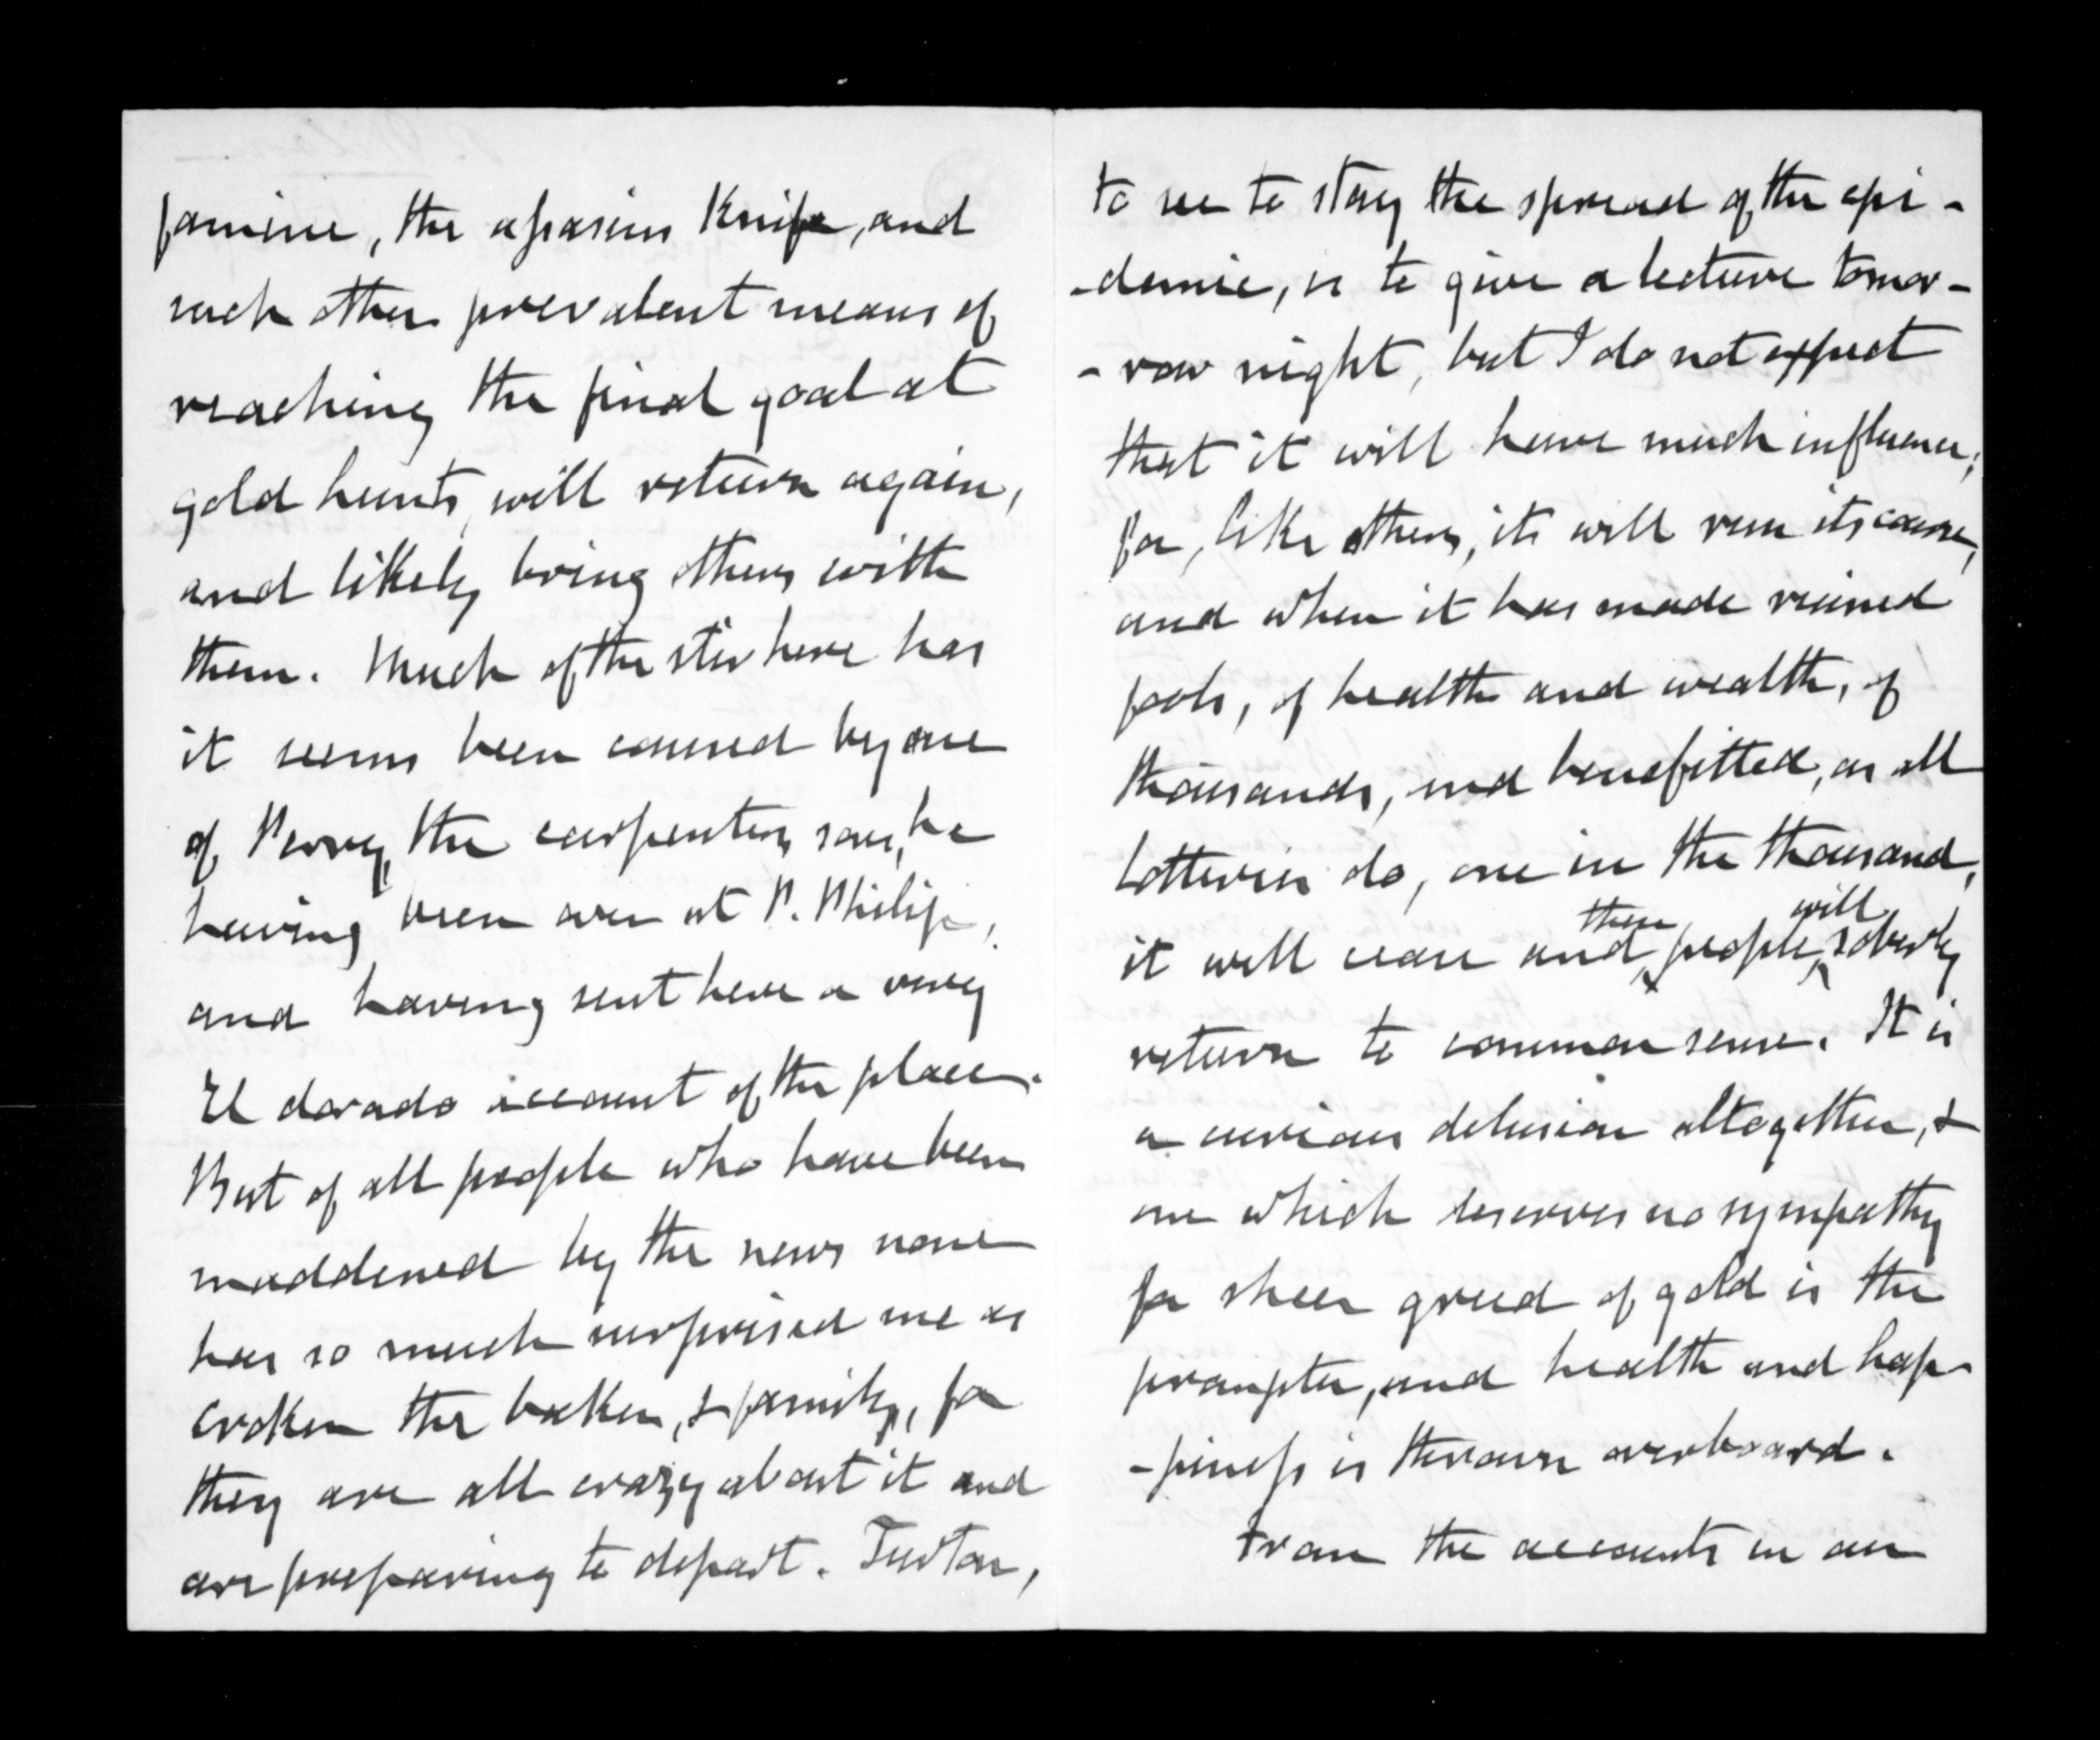 famine, the assassins Knife, and
such other prevalent means of
reaching the final goal at
gold hunts, will return again,
and likely bring others with
them. Much of the stir here has
it seems been caused by one
of Perry, the carpenters, sons, he
having been over at P. Philip,
and having sent here a very
El dorado account of the place.
But of all people who have been
maddened by the news none
has so much surprised me as
Croken the baker, & family, for
they are all crazy about it and
are preparing to depart. Turton,
to see to stay the spread of the epi-
-demic, is to give a lecture tomor-
-row night, but I do not expect
that it will have much influence;
for, like others, its will run its course,
and when it has made ruined
fools, of health and wealth, of
thousands, and benefitted, as all
Lotteries do, one in the thousand,
it will cease and then people, will soberly
return to common sense. It is
a curious delusion altogether, &
one which deserves no sympathy
for sheer greed of gold is the
prompter, and health and hap-
-piness is thrown overboard.
From the accounts in our